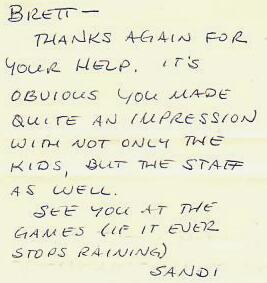 BRETT—
THANKS AGAIN FOR
YOUR HELP. IT'S
OBVIOUS YOU MADE
QUITE AN IMPRESSION
WITH NOT ONLY THE
KIDS, BUT THE STAFF
AS WELL.
SEE YOU AT THE
GAMES (IF IT EVER
STOPS RAINING)
SANDI